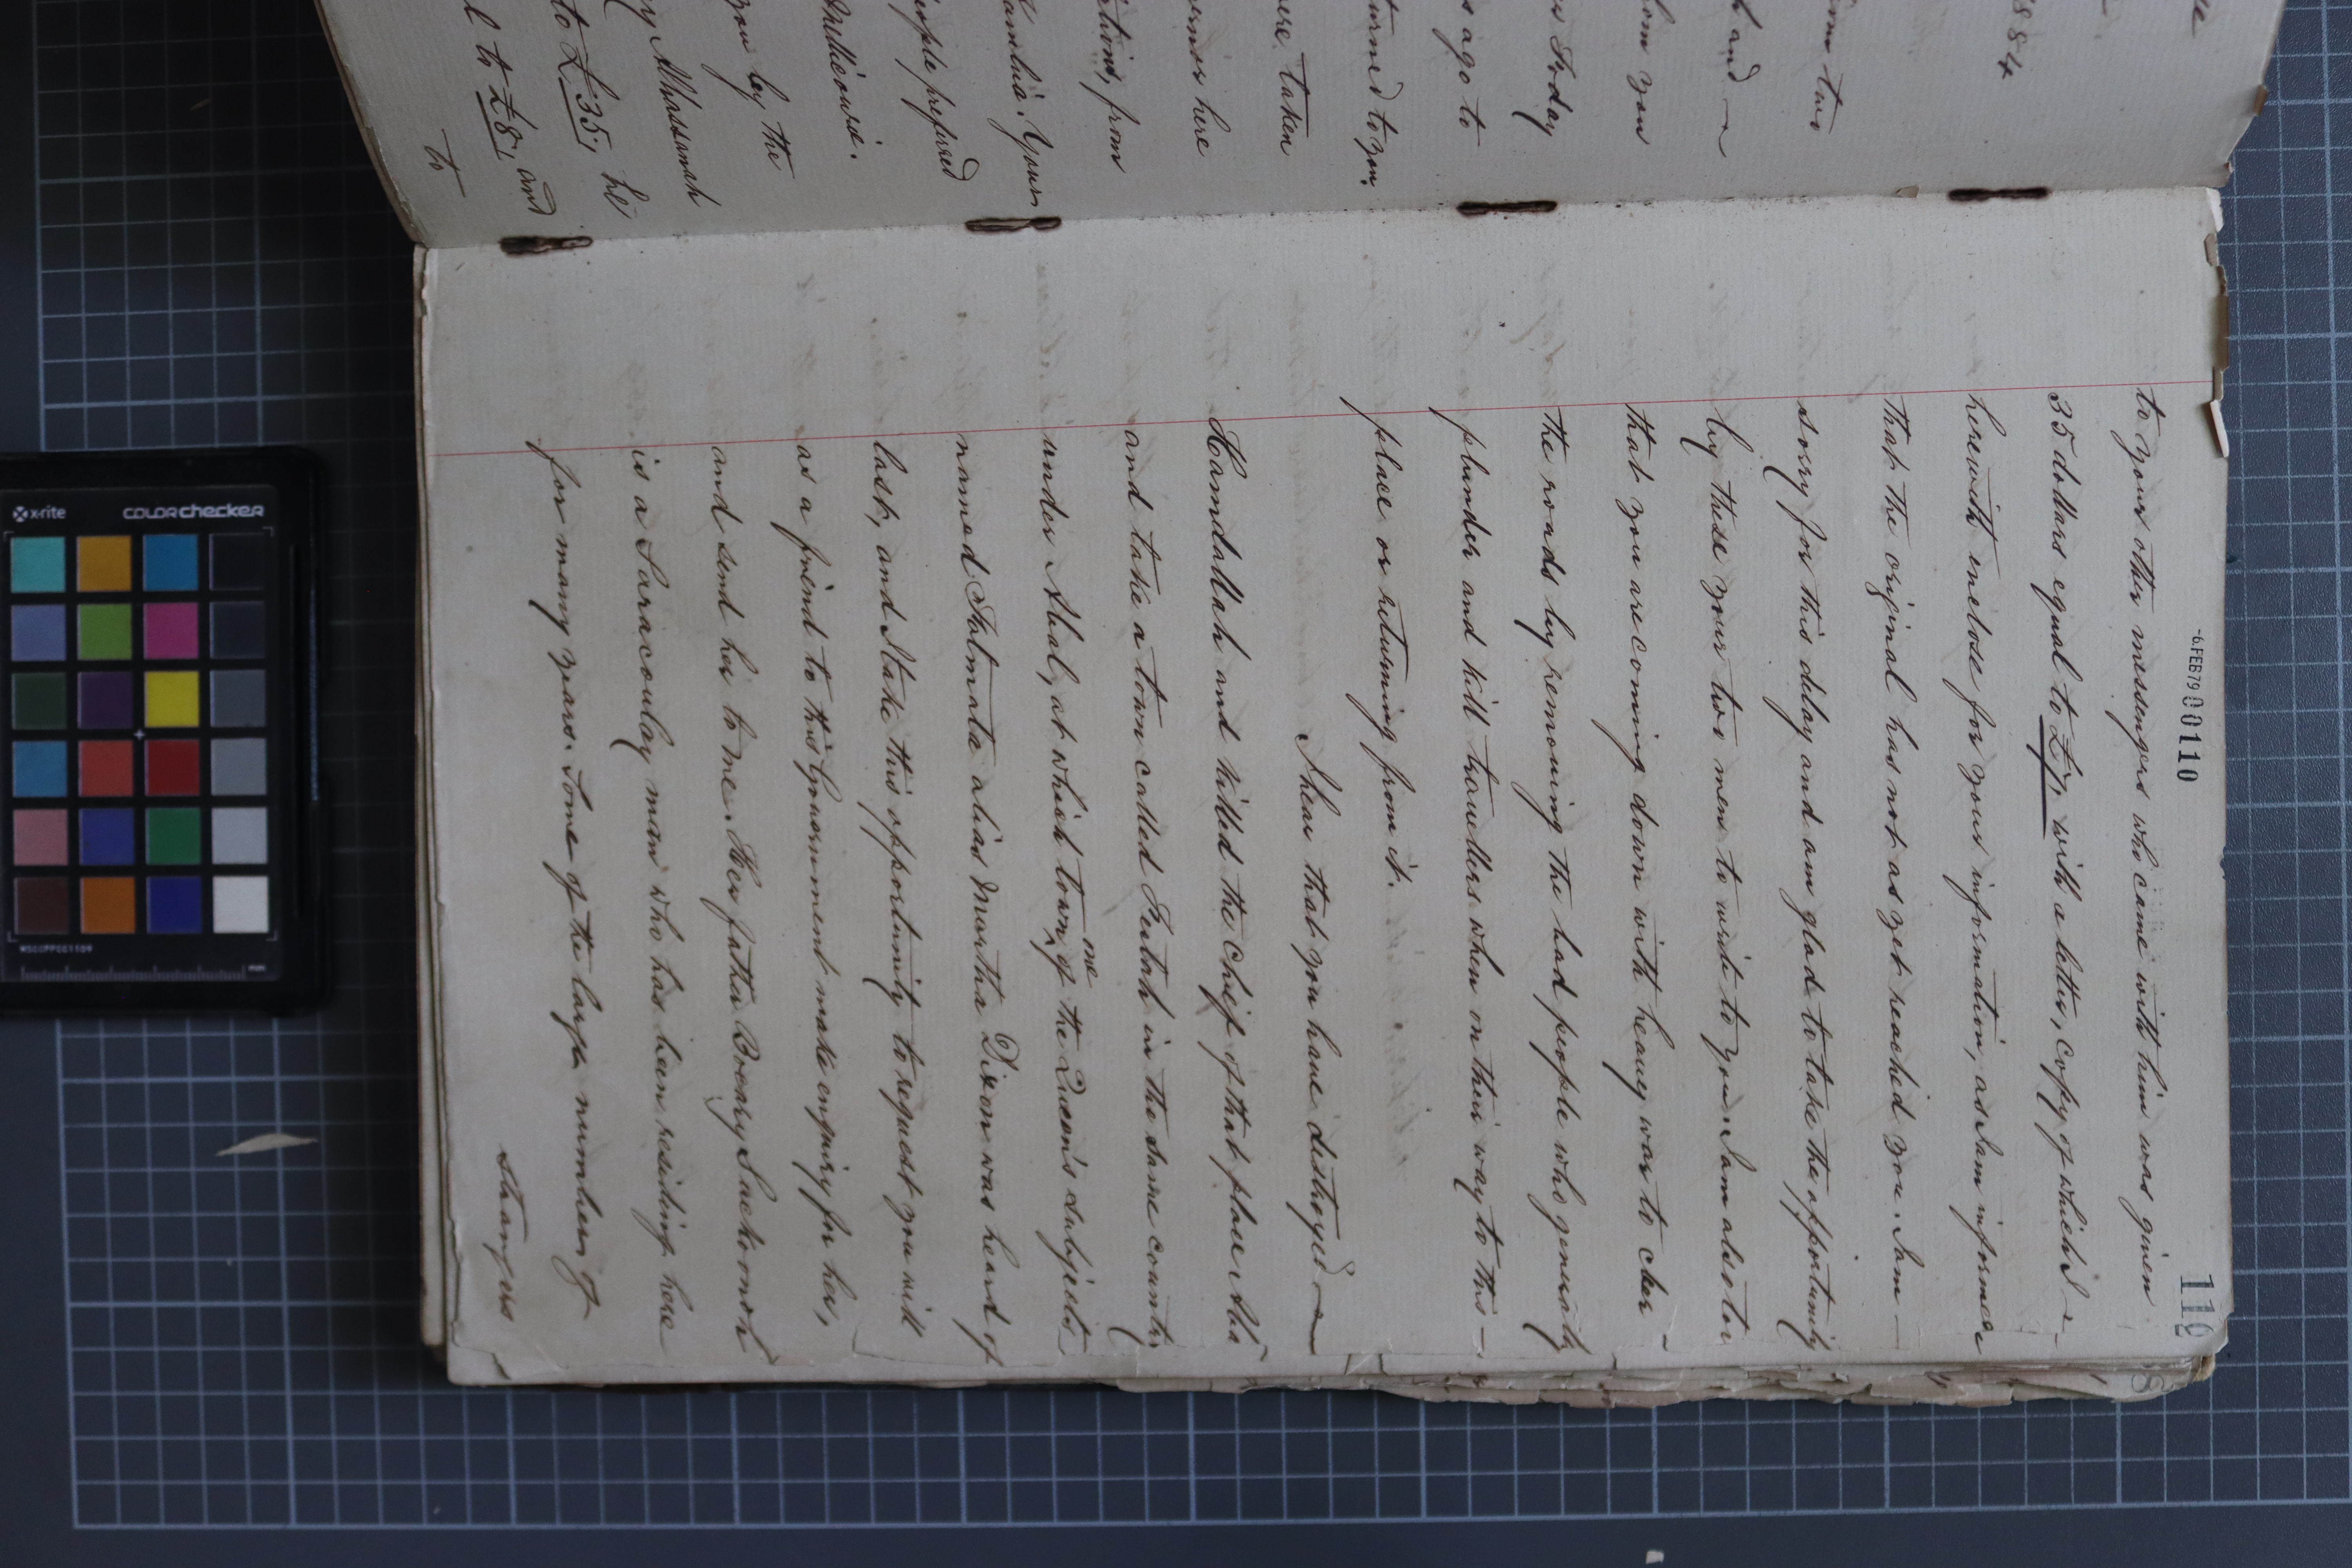 to your other messengers who came with him was given
35 dollars equal to £7, with a letter, copy of which I
herewith enclose for your information, as I am informed
that the original has not as yet reached you. I am
sorry for this delay and am glad to take the opportunity
by these your two men to write to you. I am also to
that you are coming down with heavy war to clear
the roads by removing the bad people who generally
plunder and kill travellers when on their way to this
place or returning from it.
I hear that you have destroyed
Hamdallah and killed the Chief of that place
and take a town called in the same country
under Abal, at which town one of the Queen's subjects
named Fatmata alias Martha Dixon was heard of
last, and I take this opportunity to request you will
as a friend to this Government make enquiry for her,
and send her to me. Her father
is a Saracoulay man who has been residing here
for many years. Some of the large numbers of
strangers
-6.FEB79 00110
110
1884
some two
and
whom you
Today
ago to
returned to you.
were taken
here
from
Your
people prepared
you by the
Alhassanah
to £35, he
to £8, and
to